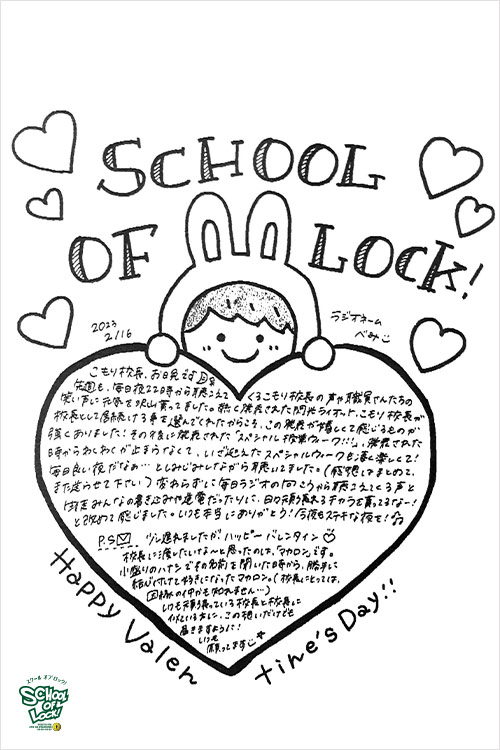 SCHOOL
OF LOCK!
2023
2/16
ラジオネーム
べみこ
こもり校長、お疲れ様です
も、毎日夜22時から聴こえてくるこもり校長の声や職員さんたちの
笑い声に元気を沢山貰ってました。に発表された閃光ライオット、こもり校長が
校長として居続ける事を選んでくれたからこそ、この発表が嬉しくて感じるものが
強くありました!その後に発表された"スペシャル授業ウィーク!!!"、発表された
時からわくわくが止まらなくて、いざ迎えたスペシャルウィークも凄く楽しくて!
毎日良い夜だなぁ…としみじみしながら聴いてました。(感想はまとめて、
また送らせて下さい)変わらずに毎日ラジオの向こうから聴こえてくる声と
生徒みんなの書き込みや逆電だったりに、日々頑張れるチカラを貰ってるなー!
と改めて感じました。いつも本当にありがとう!今夜もステキな夜を!
P.S 少し遅れましたがハッピーバレンタイン
校長に渡したいなーと思ったのは、マカロンです。
小盛りのハナシでその名前を聞いた時から、勝手に
結びつけて好きになったマカロン。(校長にとっては、
因縁の仲かも知れません…)
いつも頑張っている校長と校長に
この想いだけでも
届きますように!
いつも
Happy Valentine's Day!!
スクール オブ ロック!
SCHOOL
OF
LOCK!